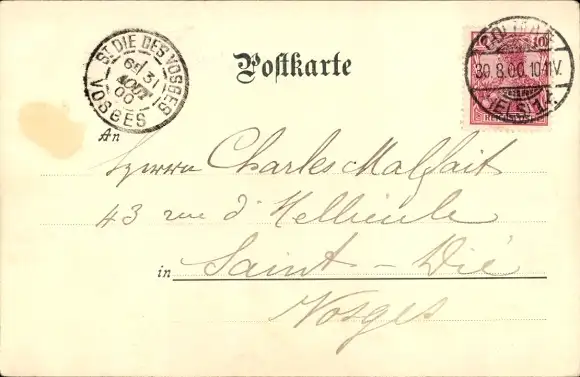 ST DIE DES VOSGES
31
AOUT
00
VOSGES
Postkarte
10
30.8.00.10-11V.
(ELS.)
An
Herrn Charles Malfait
43 rue d'Hellieule
in Saint-Dié
Vosges